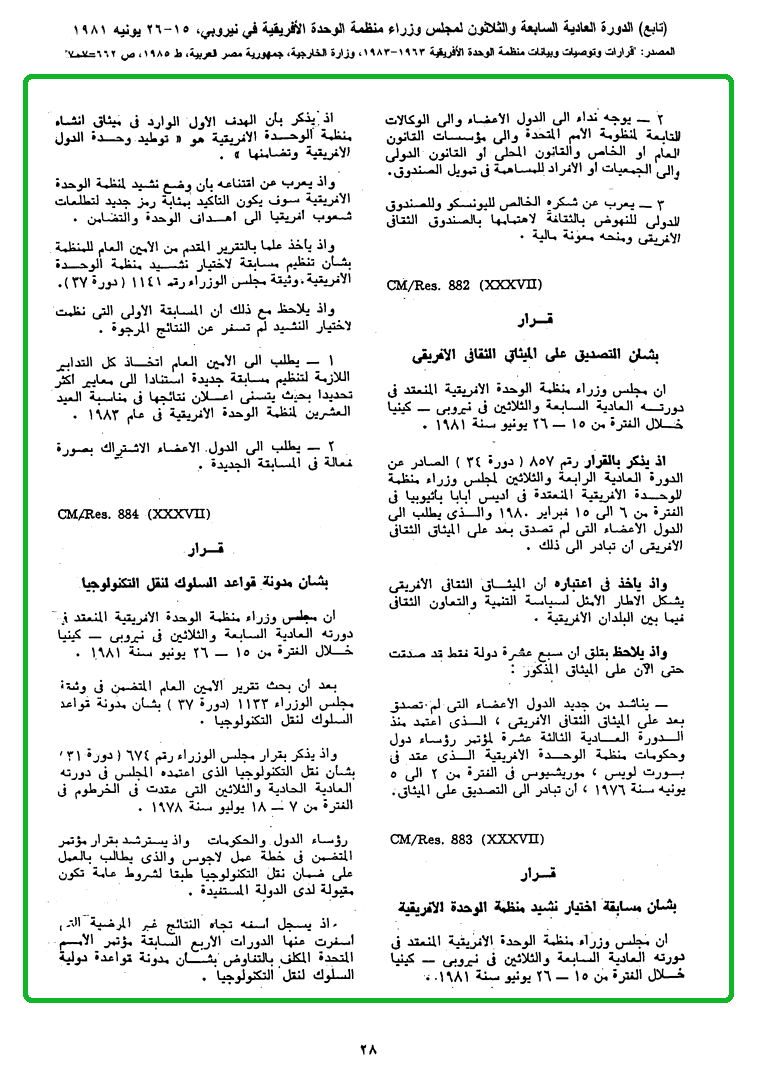 (تابع) الدورة العادية السابعة والثلاثون لمجلس وزراء منظمة الوحدة الأفريقية في نيروبي، ١٥-٢٦ يونيه ١٩٨١
المصدر: "قرارات وتوصيات وبيانات منظمة الوحدة الأفريقية ١٩٦٣-١٩٨٣، وزارة الخارجية، جمهورية مصر العربية، ط ١٩٨٥، ص ٦٦٢
٢ — يوجه نداء الى الدول الاعضاء والى الوكالات
التابعة لمنظومة الأمم المتحدة والى مؤسسات القانون
العام أو الخاص والقانون المحلى أو القانون الدولى
والى الجمعيات أو الافراد للمساهمة فى تمويل الصندوق.
٣ — يعرب عن شكره الخالص لليونسكو وللصندوق
الدولى للنهوض بالثقافة لاهتمامها بالصندوق الثقافى
الأفريقى ومنحه معونة مالية .
CM/Res. 882 (XXXVII)
قــرار
بشأن التصديق على الميثاق الثقافى الأفريقى
ان مجلس وزراء منظمة الوحدة الأفريقية المنعقد فى
دورتــه العادية السابعة والثلاثين فى نيروبى — كينيا
خــلال الفترة من ١٥ — ٢٦ يونيو سنة ١٩٨١ .
اذ يذكر بالقرار رقم ٨٥٧ ( دورة ٣٤ ) الصادر عن
الدورة العادية الرابعة والثلاثين لمجلس وزراء منظمة
للوحــدة الأفريقية المنعقدة فى أديس أبابا بأثيوبيا فى
الفترة من ٦ الى ١٥ فبراير ١٩٨٠ والــذى يطلب الى
الدول الاعضاء التى لم تصدق بعد على الميثاق الثقافى
الأفريقى أن تبادر الى ذلك .
واذ يأخذ فى اعتباره أن الميثــاق الثقافى الأفريقى
يشكل الاطار الأمثل لسياسة التنمية والتعاون الثقافى
فيما بين البلدان الأفريقية .
واذ يلاحظ بقلق أن سبع عشرة دولة فقط قد صدقت
حتى الآن على الميثاق المذكور :
— يناشد من جديد الدول الأعضاء التى لم تصدق
بعد على الميثاق الثقافى الأفريقى ، الــذى اعتمد منذ
الــدورة العــادية الثالثة عشرة لمؤتمر رؤساء دول
وحكومات منظمة الوحدة الأفريقية الــذى عقد فى
بــورت لويس ، موريشيوس فى الفترة من ٢ الى ٥
يونيه سنة ١٩٧٦ ، أن تبادر الى التصديق على الميثاق.
CM/Res. 883 (XXXVII)
قــرار
بشأن مسابقة اختيار نشيد منظمة الوحدة الأفريقية
ان مجلس وزراء منظمة الوحدة الأفريقية المنعقد فى
دورته العادية السابعة والثلاثين فى نيروبى — كينيا
خــلال الفترة من ١٥ — ٢٦ يونيو سنة ١٩٨١ .
اذ يذكر بأن الهدف الأول الوارد فى ميثاق انشاء
منظمة الوحــدة الأفريقية هو « توطيد وحــدة الدول
الأفريقية وتضامنها » .
واذ يعرب عن اقتناعه بأن وضع نشيد لمنظمة الوحدة
الأفريقية سوف يكون التأكيد بمثابة رمز جديد لتطلعات
شــعوب أفريقيا الى أهــداف الوحدة والتضامن .
واذ يأخذ علما بالتقرير المقدم من الأمين العام للمنظمة
بشأن تنظيم مسابقة لاختيار نشــيد منظمة الوحــدة
الأفريقية، وثيقة مجلس الوزراء رقم ١١٤١ ( دورة ٣٧ ).
واذ يلاحظ مع ذلك أن المسابقة الأولى التى نظمت
لاختيار النشيد لم تسفر عن النتائج المرجوة .
١ — يطلب الى الأمين العام اتخــاذ كل التدابير
اللازمة لتنظيم مسابقة جديدة استنادا الى معايير أكثر
تحديدا بحيث يتسنى اعــلان نتائجها فى مناسبة العيد
العشرين لمنظمة الوحدة الأفريقية فى عام ١٩٨٣ .
٢ — يطلب الى الدول الأعضاء الاشتراك بصورة
فعالة فى المسابقة الجديدة .
CM/Res. 884 (XXXVII)
قــرار
بشأن مدونة قواعد السلوك لنقل التكنولوجيا
ان مجلس وزراء منظمة الوحدة الأفريقية المنعقد فى
دورته العادية السابعة والثلاثين فى نيروبى — كينيا
خــلال الفترة من ١٥ — ٢٦ يونيو سنة ١٩٨١ .
بعد أن بحث تقرير الأمين العام المتضمن فى وثيقة
مجلس الوزراء ١١٣٣ (دورة ٣٧ ) بشأن مدونة قواعد
السلوك لنقل التكنولوجيا .
واذ يذكر بقرار مجلس الوزراء رقم ٦٧٤ ( دورة ٣١ )
بشأن نقل التكنولوجيا الذى اعتمده المجلس فى دورته
العادية الحادية والثلاثين التى عقدت فى الخرطوم فى
الفترة من ٧ — ١٨ يوليو سنة ١٩٧٨ .
رؤساء الدول والحكومات واذ يسترشد بقرار مؤتمر
المتضمن فى خطة عمل لاجوس والذى يطالب بالعمل
على ضمان نقل التكنولوجيا طبقا لشروط عامة تكون
مقبولة لدى الدولة المستفيدة .
اذ يسجل أسفه تجاه النتائج غير المرضية التى
أسفرت عنها الدورات الأربع السابقة مؤتمر الأمــم
المتحدة المكلف بالتفاوض بشــأن مدونة قواعدة دولية
السلوك لنقل التكنولوجيا .
٢٨